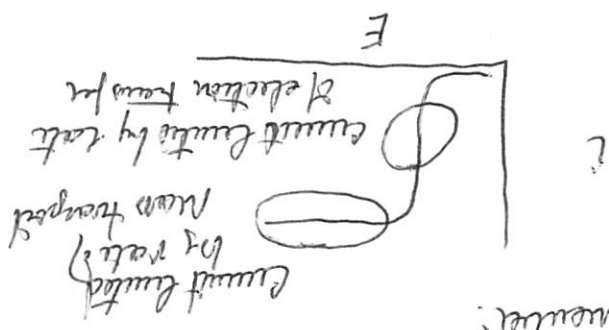 member:
Current limited
by rate of
mass transport
i
current limited by rate
of electron transfer
E